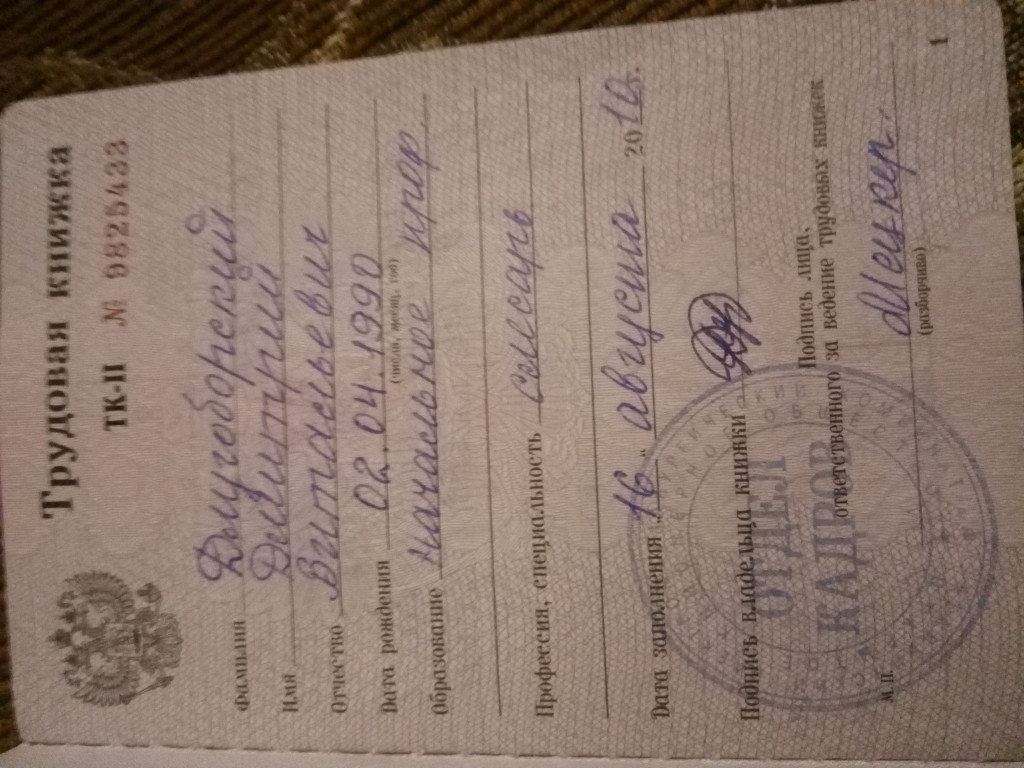 Трудовая книжка
ТК-II № 9825433
Фамилия Долугоборский
Имя Дмитрий
Отчество Витальевич
Дата рождения 02.04.1990
(число, месяц, год)
Образование начальное проф.
Профессия, специальность слесарь
Дата заполнения „16“ августа 2010г.
Подпись владельца книжки
ОТДЕЛ
КАДРОВ
Подпись лица,
ответственного за ведение трудовых книжек
М.П.
(разборчиво)
1